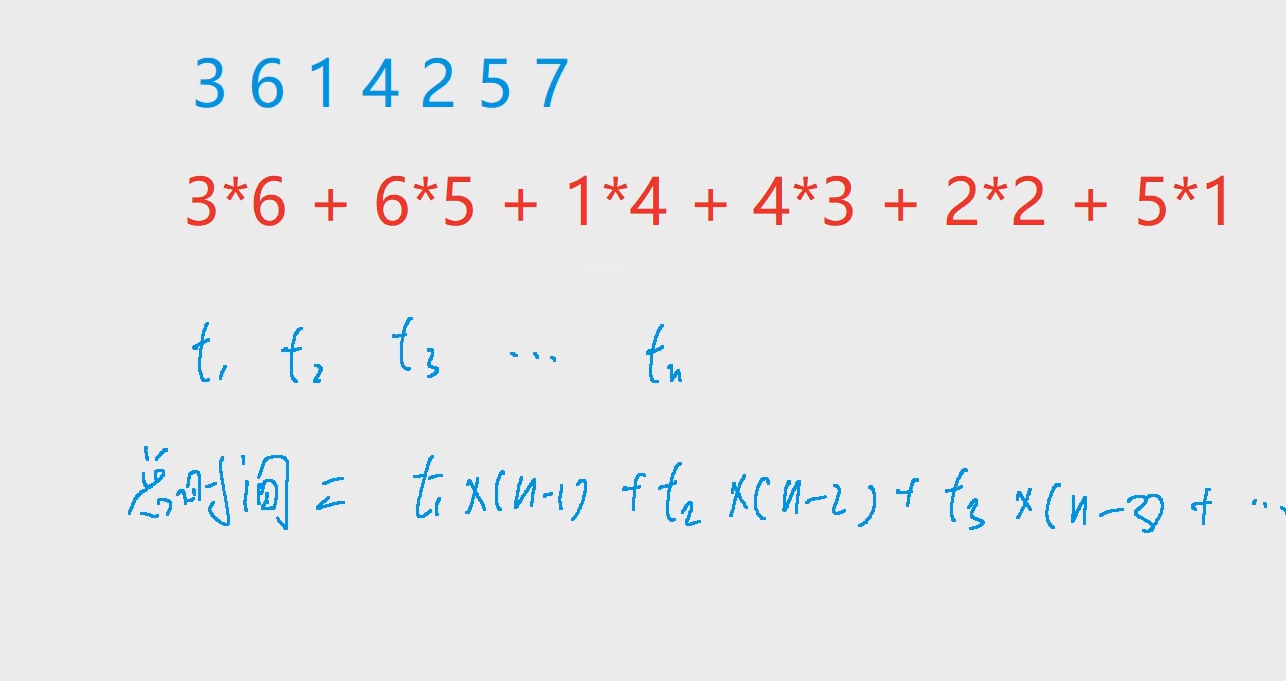 3 6 1 4 2 5 7
3*6 + 6*5 + 1*4 + 4*3 + 2*2 + 5*1
t₁ t₂ t₃ ... tₙ
总时间 = t₁ ×(n-1) + t₂ ×(n-2) + t₃ ×(n-3) + ...